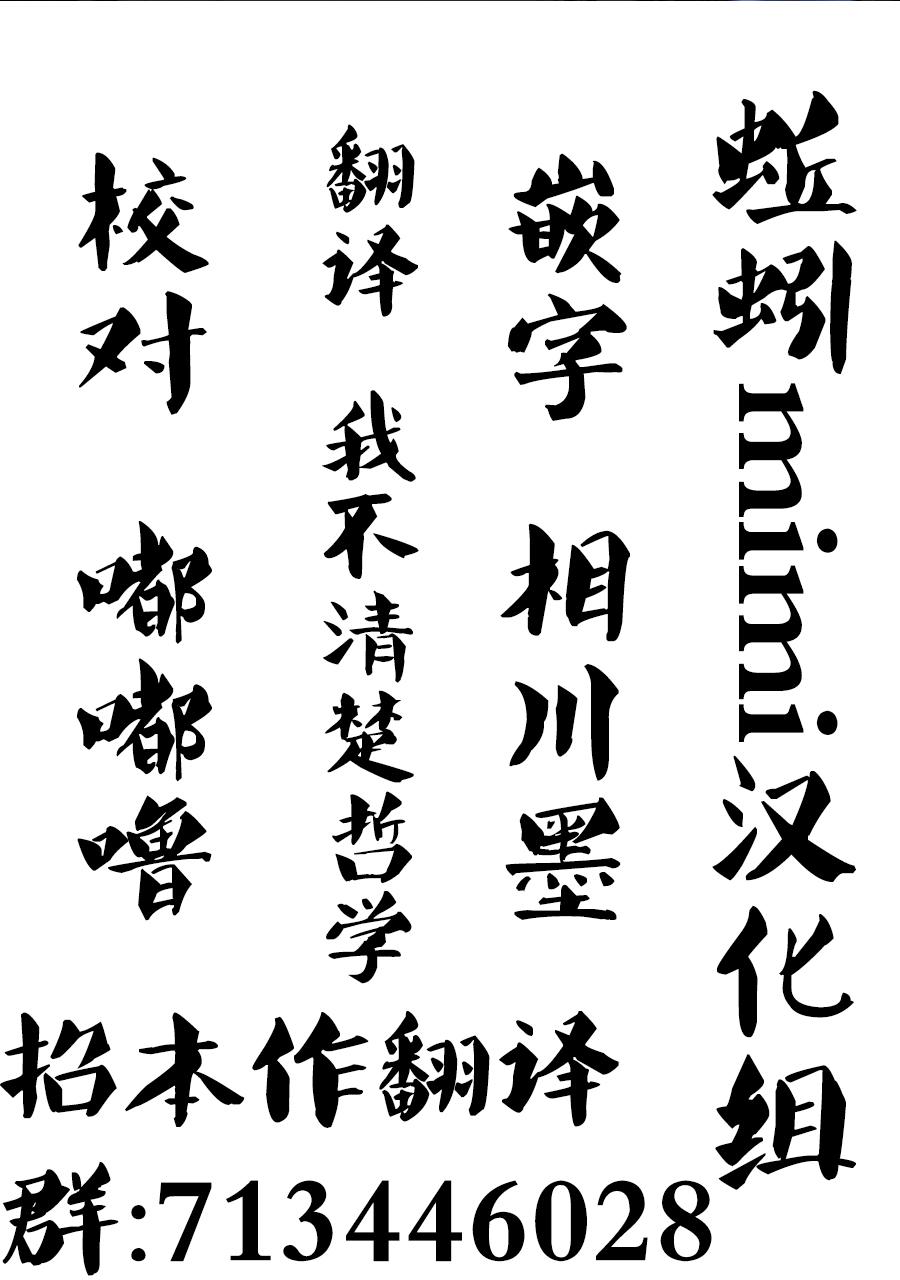 蚯蚓mimi汉化组
嵌字 相川墨
翻译 我不清楚哲学
校对 嘟嘟噜
招本作翻译
群:713446028